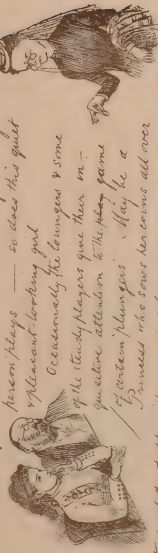 person plays — so does this quiet
& pleasant-looking girl
Occasionally the loungers & some
of the steady players give their in-
quisitive attention to the play game
of certain plungers. May be a
Princess who sows her coins all over